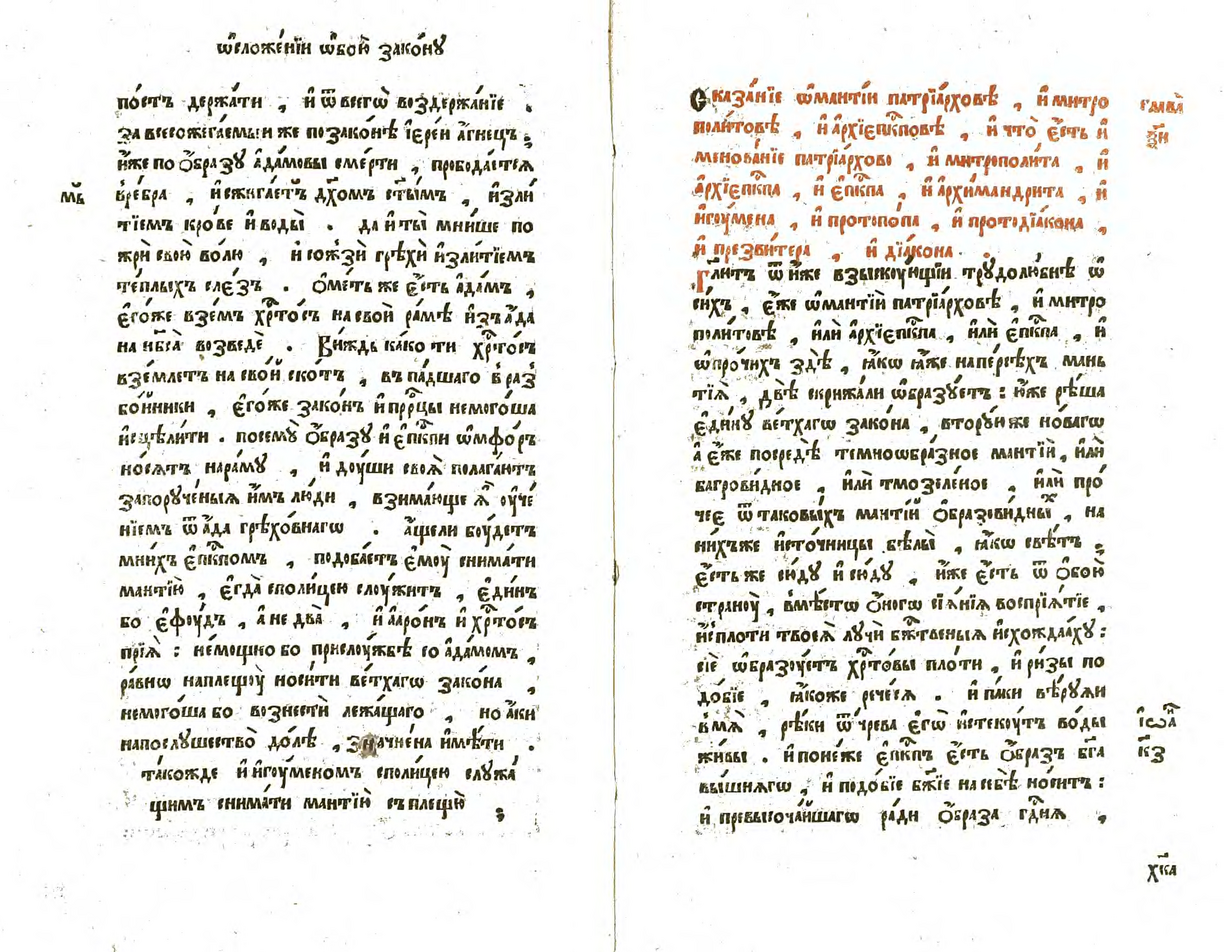 ѡ҆сложе́нїи ѡ҆бою̀ зако́нꙋ
по́стъ держа́ти , и҆ ѿ всегѡ̀ воздержа́нїе .
за всесожега́емыи же по зако́нѣ і҆ере́и а҆́гнецъ ,
и҆́же по ѻ҆́бразꙋ а҆да́мовы сме́рти , прободае́тсѧ
в̾ре́бра , и҆ сжига́етъ дх҃омъ ст҃ы́мъ , и҆злїѧ́
тїемъ кро́ве и҆ воды̀ . да и҆ ты̀ мни́ше по
жрѝ свою̀ во́лю , и҆ сожзѝ грѣхѝ и҆злитїемъ
те́плыхъ сле́зъ . ѻ҆́метъ же є҆́сть а҆да́мъ ,
є҆го́же взе́мъ хрⷭ҇то́съ на свои̑ ра́мѣ и҆зъ а҆́да
на нб҃са̀ возведѐ . Ви́ждь ка́ко ти хрⷭ҇то́съ
взе́млетъ на сво́й ско́тъ , въ па́дшаго в̾ раз
бо́йники , є҆го́же зако́нъ и҆ прⷪ҇рцы немого́ша
и҆сцѣли́ти . посемꙋ̀ ѻ҆́бразꙋ и҆ є҆пⷭ҇кпи ѡ҆мфо́ръ
но́сѧтъ на ра́мꙋ , и҆ до́уши своѧ̀ полага́ютъ
за порꙋче́ныѧ и҆̀мъ лю́ди , взима́юще ѧ҆̀ оу҆че́
нїемъ ѿ а҆́да грѣхо́внагѡ . а҆́щели бо́удетъ
мни́хъ є҆пⷭ҇кпомъ , подоба́етъ є҆мо́у снима́ти
мантїю̀ , є҆гда̀ сполицею слоу́житъ , є҆ди́нъ
бо є҆фо́удъ , а҆ не два̀ , и҆ а҆аро́нъ и҆ хрⷭ҇то́съ
прїѧ̀ : не мо́щно бо при слоу́жбѣ со а҆да́момъ ,
ра́внѡ на плещо́у носи́ти ве́тхагѡ зако́на ,
немого́ша бо вознестѝ лежа́щаго , но а҆́ки
на послꙋшество̀ до́лѣ , значе́на и҆мѣ́ти .
та́кожде и҆ и҆гоу́меномъ сполицею слꙋжа́
щимъ снима́ти мантїю̀ съ плещїю̀ ,
м҃в
Сказа́нїе ѡ҆ мантїи патрїа́рховѣ , и҆ митро
поли́товѣ , и҆ а҆рхїепⷭ҇кповѣ , и҆ что̀ є҆́сть и҆
менова́нїе патрїа́рхово , и҆ митрополи́та , и҆
а҆рхїепⷭ҇кпа , и҆ є҆пⷭ҇кпа , и҆ а҆рхима́ндрита , и҆
и҆гоу́мена , и҆ протопо́па , и҆ протодїа́кона ,
и҆ презви́тера , и҆ дїа́кона .
Гл҃итъ ѿ и҆́же взыскоу́ющїи трꙋдолю́бнѣ ѡ҆
си́хъ , є҆́же ѡ҆ мантїй патрїа́рховѣ , и҆ митро
поли́товѣ , и҆лѝ а҆рхїепⷭ҇кпа , и҆лѝ є҆пⷭ҇кпа , и҆
ѡ҆ про́чихъ здѣ̀ , ꙗ҆́кѡ ꙗ҆̀же на пе́рсѣхъ мань
тїѧ̀ , двѣ̀ скрижа́ли ѡ҆бразꙋ́етъ : и҆́же рѣ́ша
є҆ди́нꙋ ве́тхагѡ зако́на , вторꙋ́ю же но́вагѡ
а҆ є҆́же посредѣ̀ темноѡбра́зное мантїй , и҆лѝ
багрови́дное , и҆лѝ тмозеле́ное , и҆лѝ про́
чее ѿ таковы́хъ мантїй ѻ҆бразови́дныⷯ , на
ни́хъже и҆сто́чницы бѣлы̀ , ꙗ҆́кѡ свѣ́тъ ,
є҆́сть же сю́дꙋ и҆ сю́дꙋ , и҆́же є҆́сть ѿ ѻ҆бою̀
страно́у , вмѣ́стѡ ѻ҆́ногѡ сїѧ́нїѧ воспрїѧ́тїе ,
и҆с пло́ти твоеѧ̀ лꙋчѝ бж҃твеныѧ и҆схожда́ахꙋ :
сїѐ ѡ҆бразо́уетъ хрⷭ҇то́вы пло́ти , и҆ ри́зы по
до́бїе , ꙗ҆́коже рече́сѧ . и҆ па́ки вѣ́рꙋѧи
в̾ мѧ̀ , рѣ́ки ѿ чре́ва є҆гѡ̀ и҆стекоу́тъ воды̀
жи́вы . и҆ поне́же є҆пⷭ҇кпъ є҆́сть ѻ҆́бразъ бг҃а
вы́шнѧгѡ , и҆ подо́бїе бж҃їе на себѣ̀ но́ситъ :
и҆ превысоча́йшагѡ ра́ди ѻ҆́браза гдⷭ҇нѧ ,
глава̀
з҃и
і҆ѡа́
к҃з
хк҃а